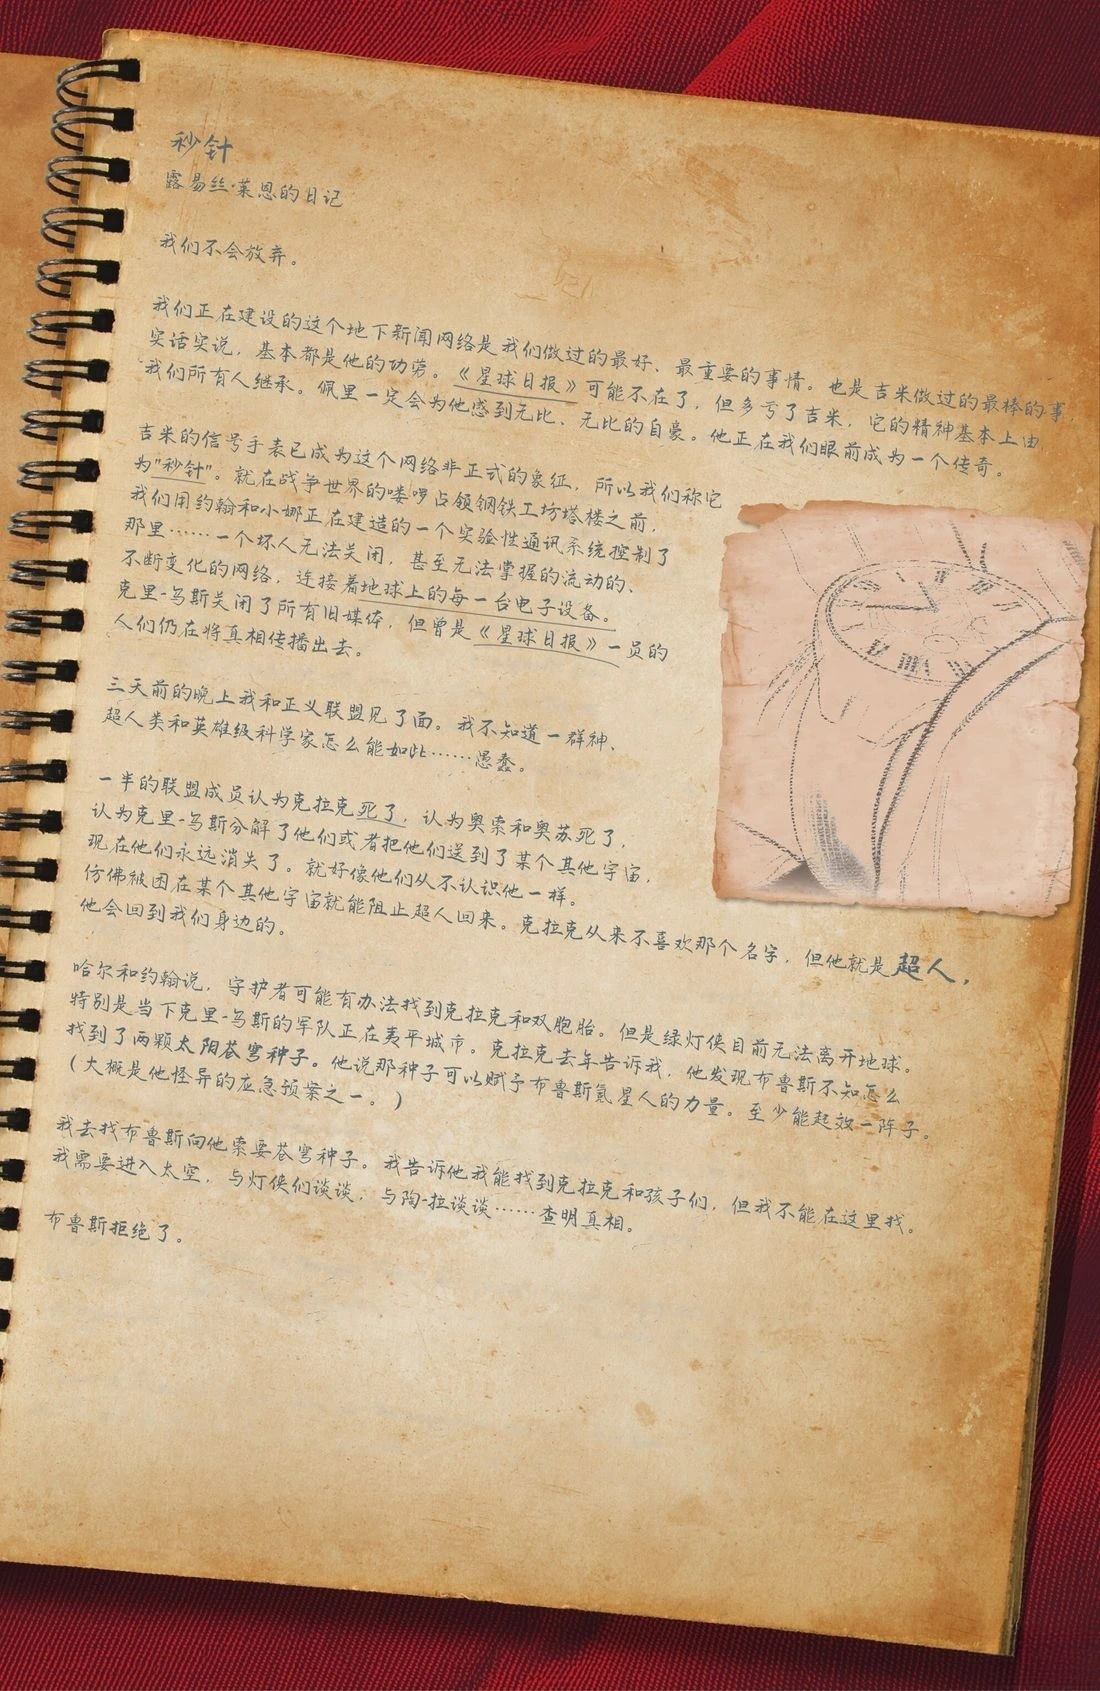 秒针
露易丝·莱恩的日记
我们不会放弃。
我们正在建设的这个地下新闻网络是我们做过的最好、最重要的事情。也是吉米做过的最棒的事，
实话实说，基本都是他的功劳。《星球日报》可能不在了，但多亏了吉米，它的精神基本上由
我们所有人继承。佩里一定会为他感到无比、无比的自豪。他正在我们眼前成为一个传奇。
吉米的信号手表已成为这个网络非正式的象征，所以我们称它
为"秒针"。就在战争世界的喽啰占领钢铁工坊塔楼之前，
我们用约翰和小娜正在建造的一个实验性通讯系统控制了
那里……一个坏人无法关闭，甚至无法掌握的流动的、
不断变化的网络，连接着地球上的每一台电子设备。
克里-乌斯关闭了所有旧媒体，但曾是《星球日报》一员的
人们仍在将真相传播出去。
三天前的晚上我和正义联盟见了面。我不知道一群神、
超人类和英雄级科学家怎么能如此……愚蠢。
一半的联盟成员认为克拉克死了，认为奥索和奥苏死了，
认为克里-乌斯分解了他们或者把他们送到了某个其他宇宙，
现在他们永远消失了。就好像他们从不认识他一样。
仿佛被困在某个其他宇宙就能阻止超人回来。克拉克从来不喜欢那个名字，但他就是超人，
他会回到我们身边的。
哈尔和约翰说，守护者可能有办法找到克拉克和双胞胎。但是绿灯侠目前无法离开地球。
特别是当下克里-乌斯的军队正在夷平城市。克拉克去年告诉我，他发现布鲁斯不知怎么
找到了两颗太阳苍穹种子。他说那种子可以赋予布鲁斯氪星人的力量。至少能起效一阵子。
（大概是他怪异的应急预案之一。）
我去找布鲁斯向他索要苍穹种子。我告诉他我能找到克拉克和孩子们，但我不能在这里找。
我需要进入太空，与灯侠们谈谈，与陶-拉谈谈……查明真相。
布鲁斯拒绝了。